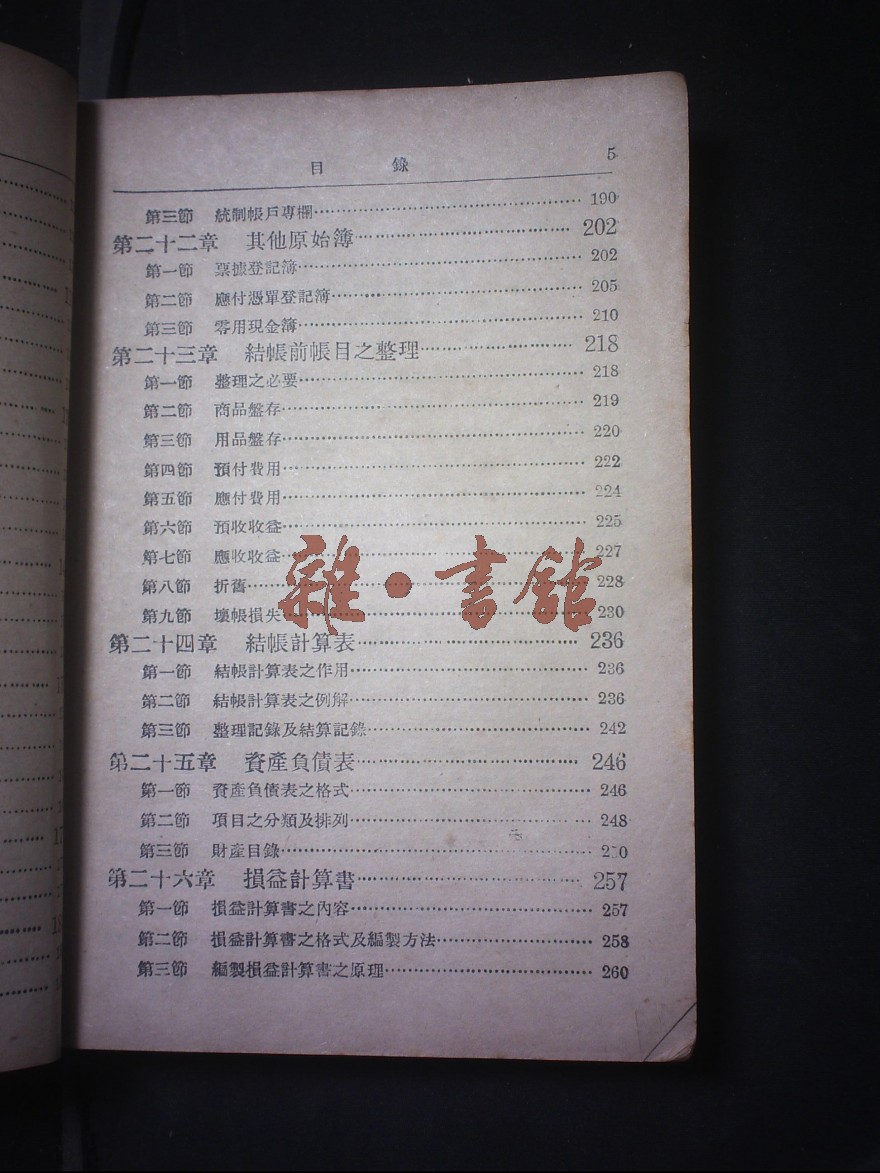 目 錄 5
第三節 統制帳戶專欄 190
第二十二章 其他原始簿 202
第一節 票據登記簿 202
第二節 應付憑單登記簿 205
第三節 零用現金簿 210
第二十三章 結帳前帳目之整理 218
第一節 整理之必要 218
第二節 商品盤存 219
第三節 用品盤存 220
第四節 預付費用 222
第五節 應付費用 224
第六節 預收收益 225
第七節 應收收益 227
第八節 折舊 228
第九節 壞帳損失 230
雜·書館
第二十四章 結帳計算表 236
第一節 結帳計算表之作用 236
第二節 結帳計算表之例解 236
第三節 整理記錄及結算記錄 242
第二十五章 資產負債表 246
第一節 資產負債表之格式 246
第二節 項目之分類及排列 248
第三節 財產目錄
第二十六章 損益計算書 257
第一節 損益計算書之內容 257
第二節 損益計算書之格式及編製方法 258
第三節 編製損益計算書之原理 260